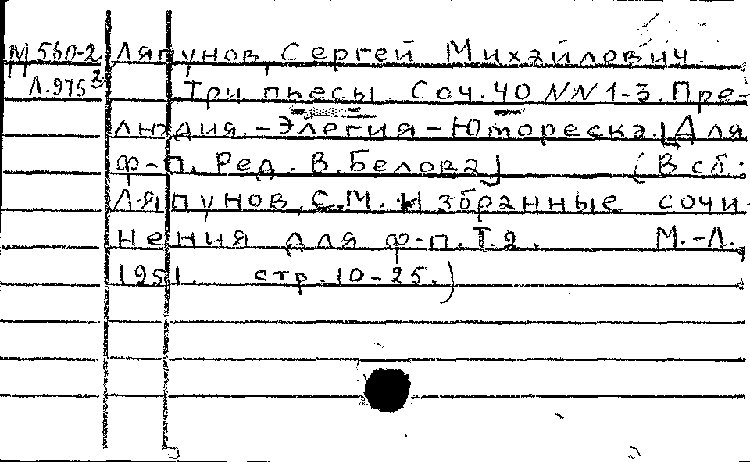 М 560-2 Ляпунов, Сергей Михайлович
Л.975³ Три пьесы Соч. 40 NN 1-3. Пре-
людия. - Элегия - Юмореска. [Для
ф-п. Ред. В. Белова] (В сб.:
Ляпунов, С.М. Избранные сочи-
нения для ф-п. Т.2. М.-Л.,
1951. стр. 10-25.)